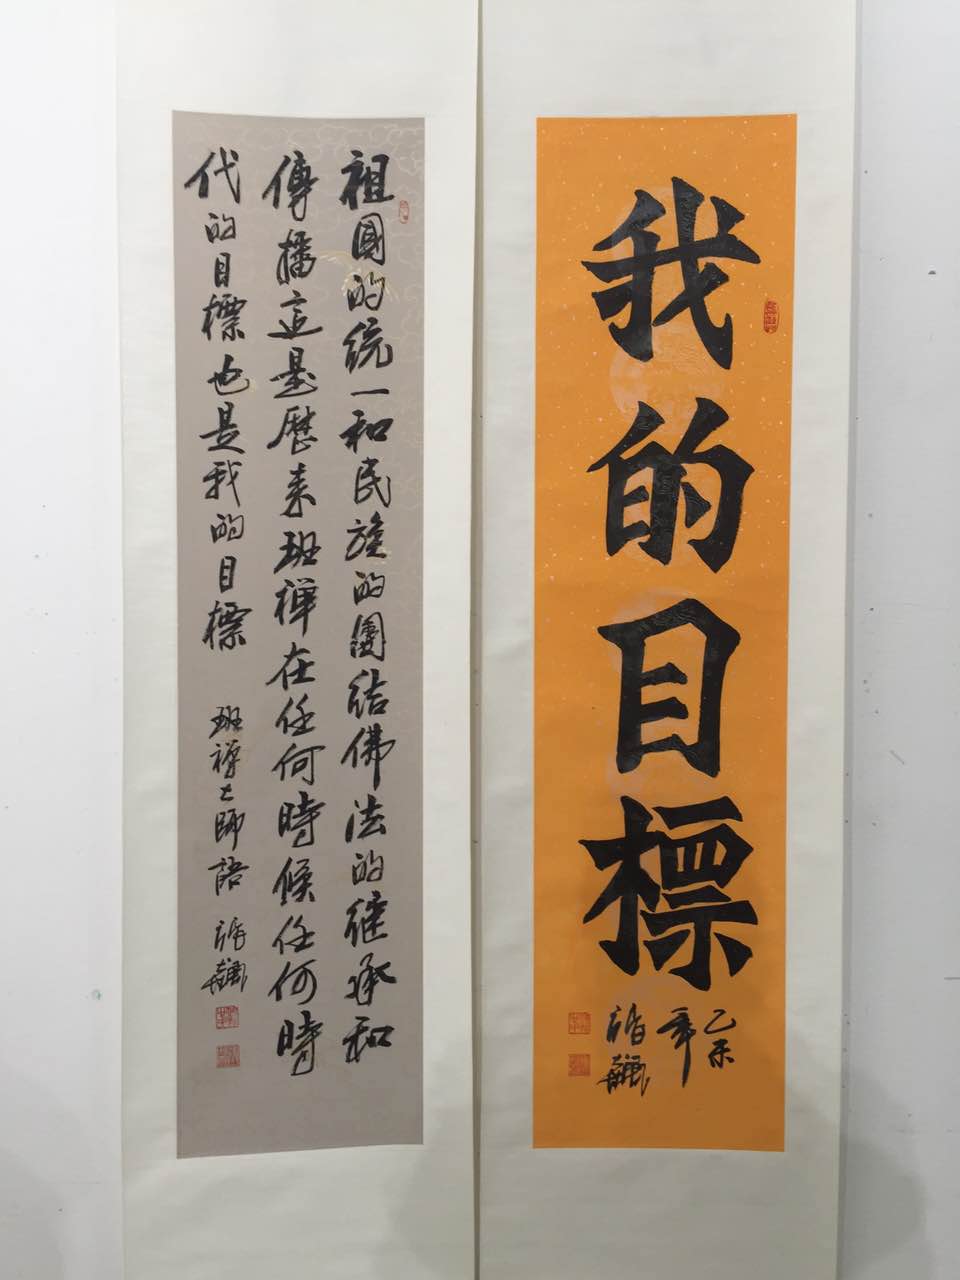 我的目標
乙未
年
祖國的統一和民族的團結佛法的繼承和
傳播這是歷來班禪在任何時候任何時
代的目標也是我的目標 班禪大師語